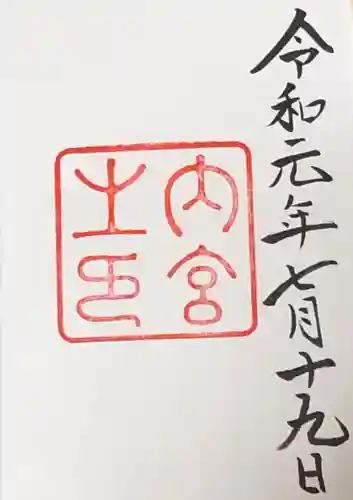 令和元年七月十九日
内宮
之印